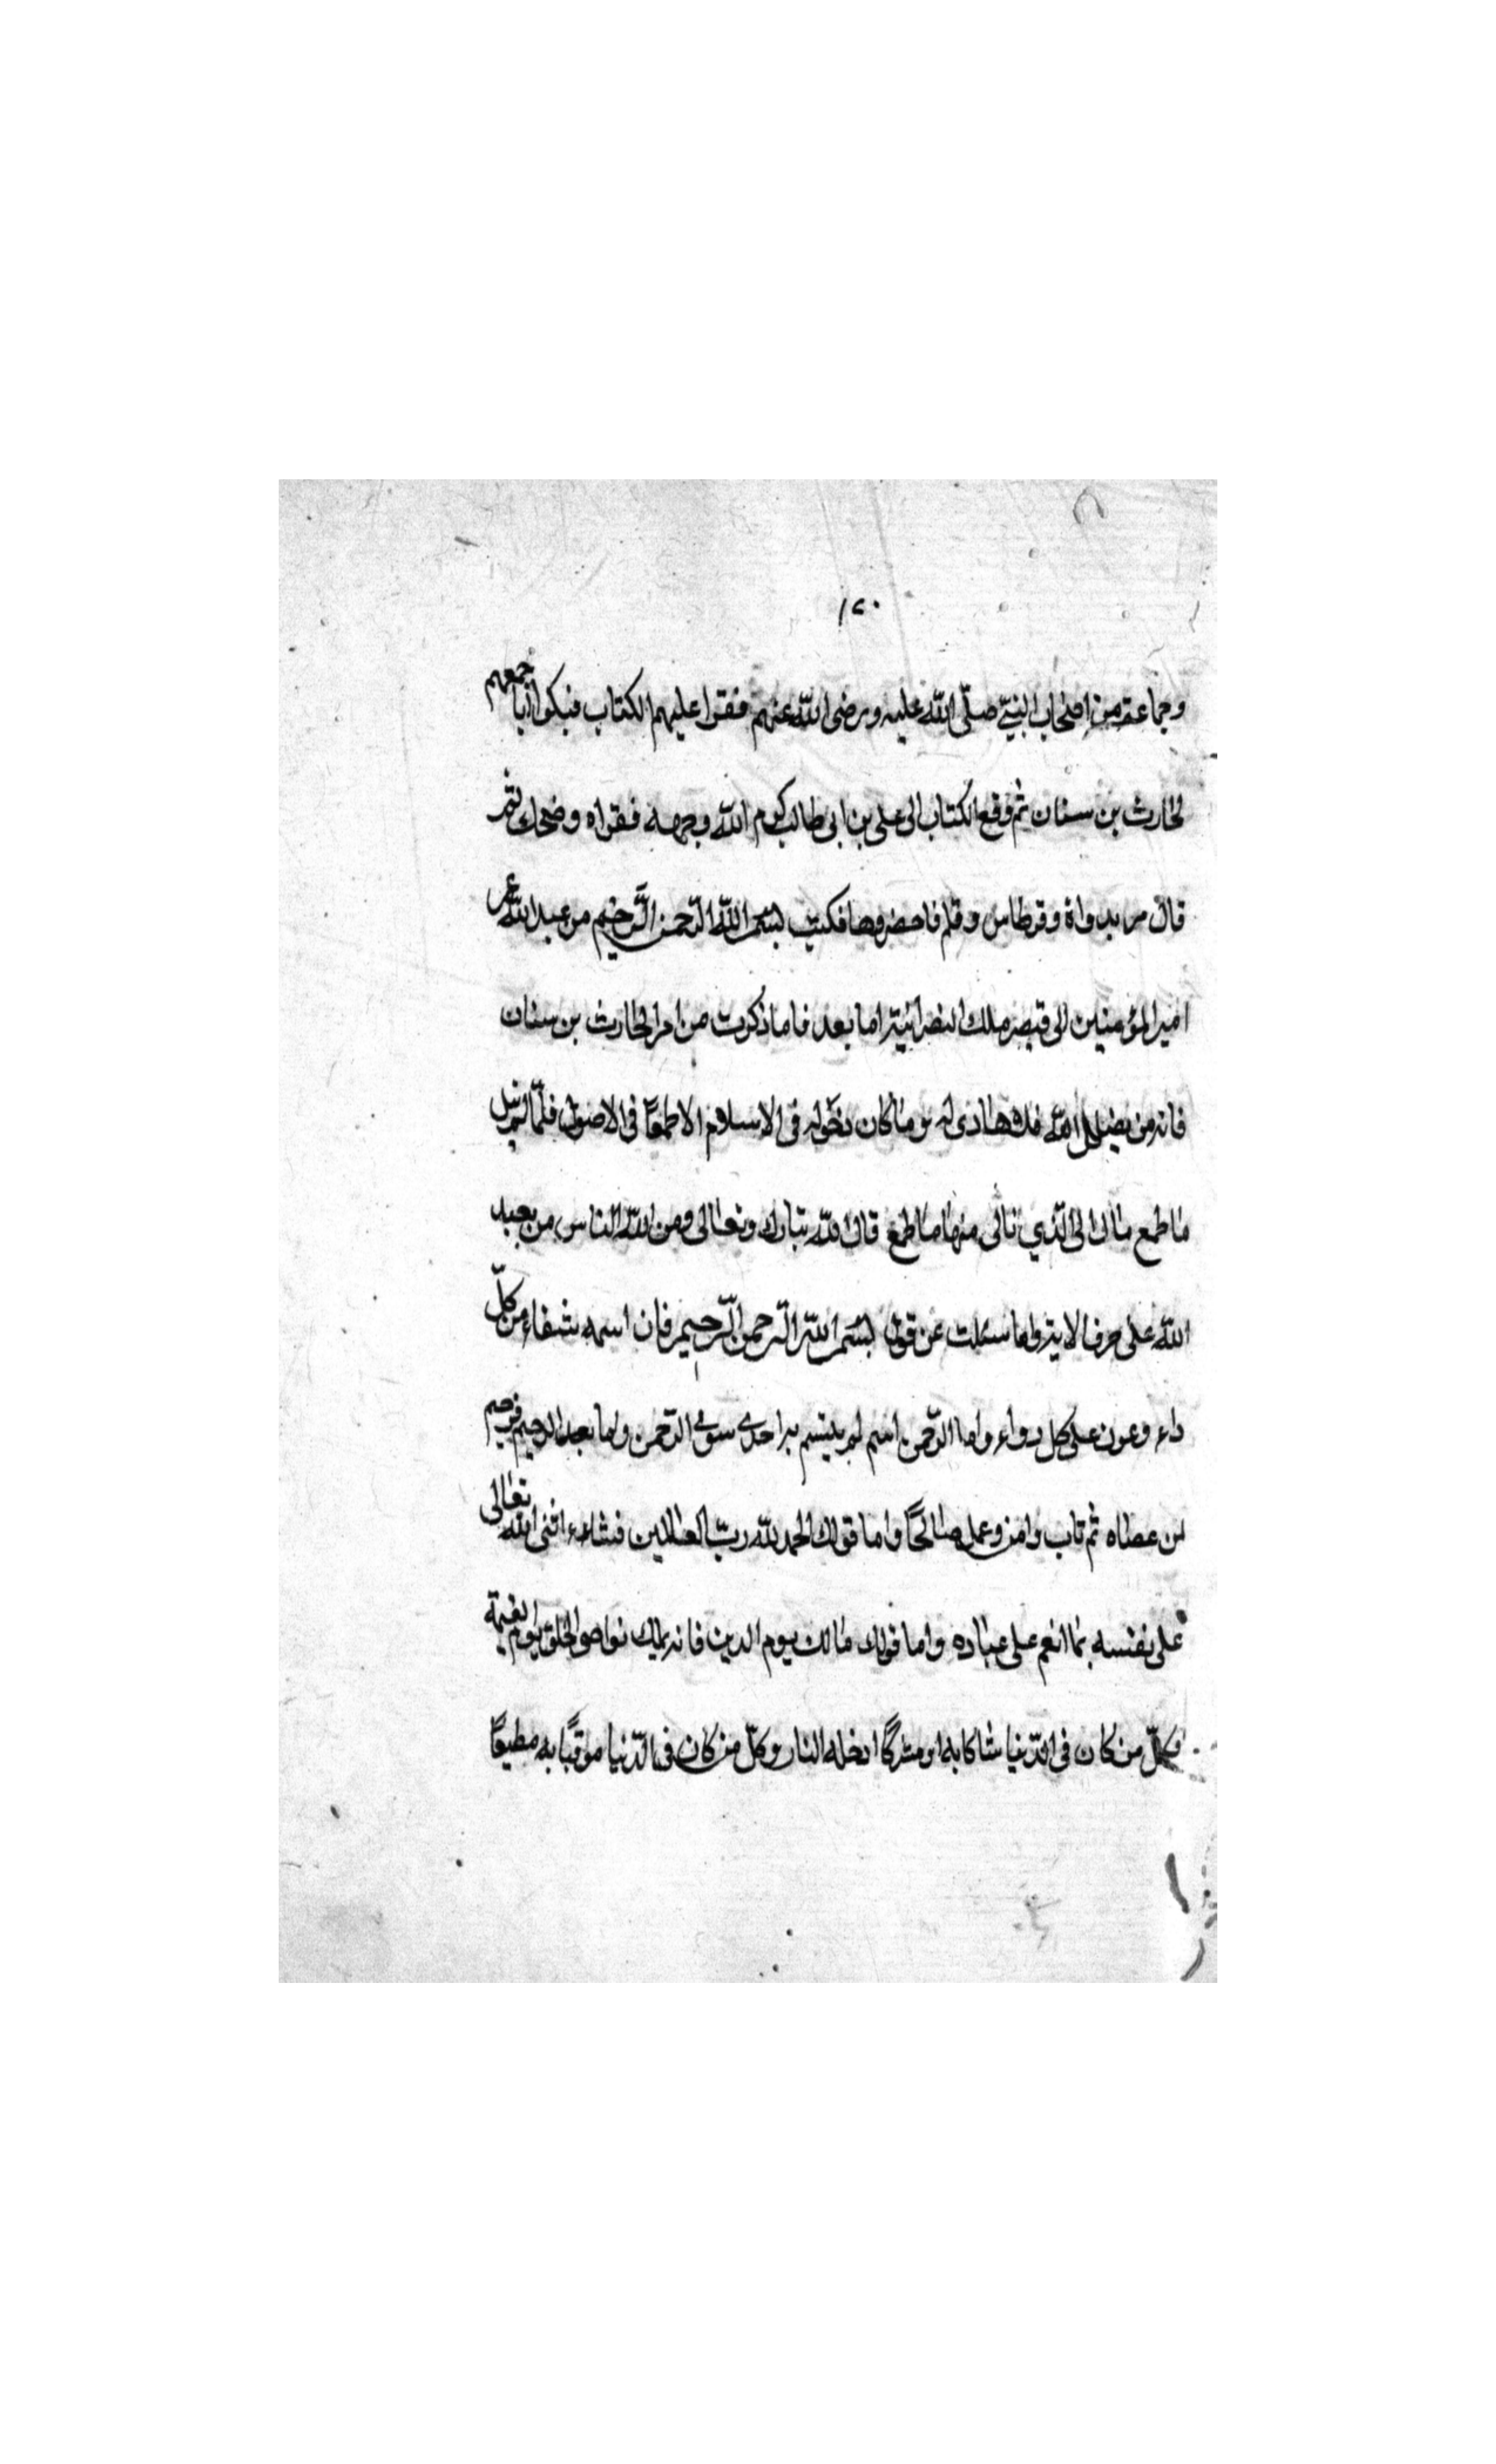 ١٢٠
وجماعة من اصحاب النبيّ صلّى الله عليه ورضى الله عنهم فقرا عليهم الكتاب فبكوا جمعهم
لحارث بن سنان ثم وقع الكتاب الى على بن ابى طالب كرم الله وجهه فقراه وضحك ثم
قال مر بدواة وقرطاس وقلم فاحضروها فكتب بسم الله الرّحمن الرّحيم من عبد الله عمر
امير المؤمنين الى قيصر ملك النصرانية اما بعد فاما ذكرت من امر الحارث بن سنان
فانه من يضلل الله فلا هادى له وما كان دخوله فى الاسلام الا طمعًا فى الاصول فلمّا لم ينل
ما طمع مال الى الذي نال منها ما طمع قال الله تبارك وتعالى ومن الناس من يعبد
الله على حرف الاية واما سئلت عن قول بسم الله الرّحمن الرّحيم فان اسمه شفاء من كلّ
داء وعون على كل دواء واما الرّحمن اسم لم يتسم به احدى سوى الرّحمن واما بعد الرحيم فرحيم
لمن عصاه ثم تاب وامن وعمل صالحًا واما قولك الحمد لله ربّ العالمين فثناء اثنى الله تعالى
على نفسه بما انعم على عباده واما قولك مالك يوم الدين فانه يملك نواصى الخلق يوم القيمة
فكلّ من كان فى الدّنيا شاكا به او مشركًا ادخله النار وكلّ من كان فى الدّنيا موقنًا به مطيعًا